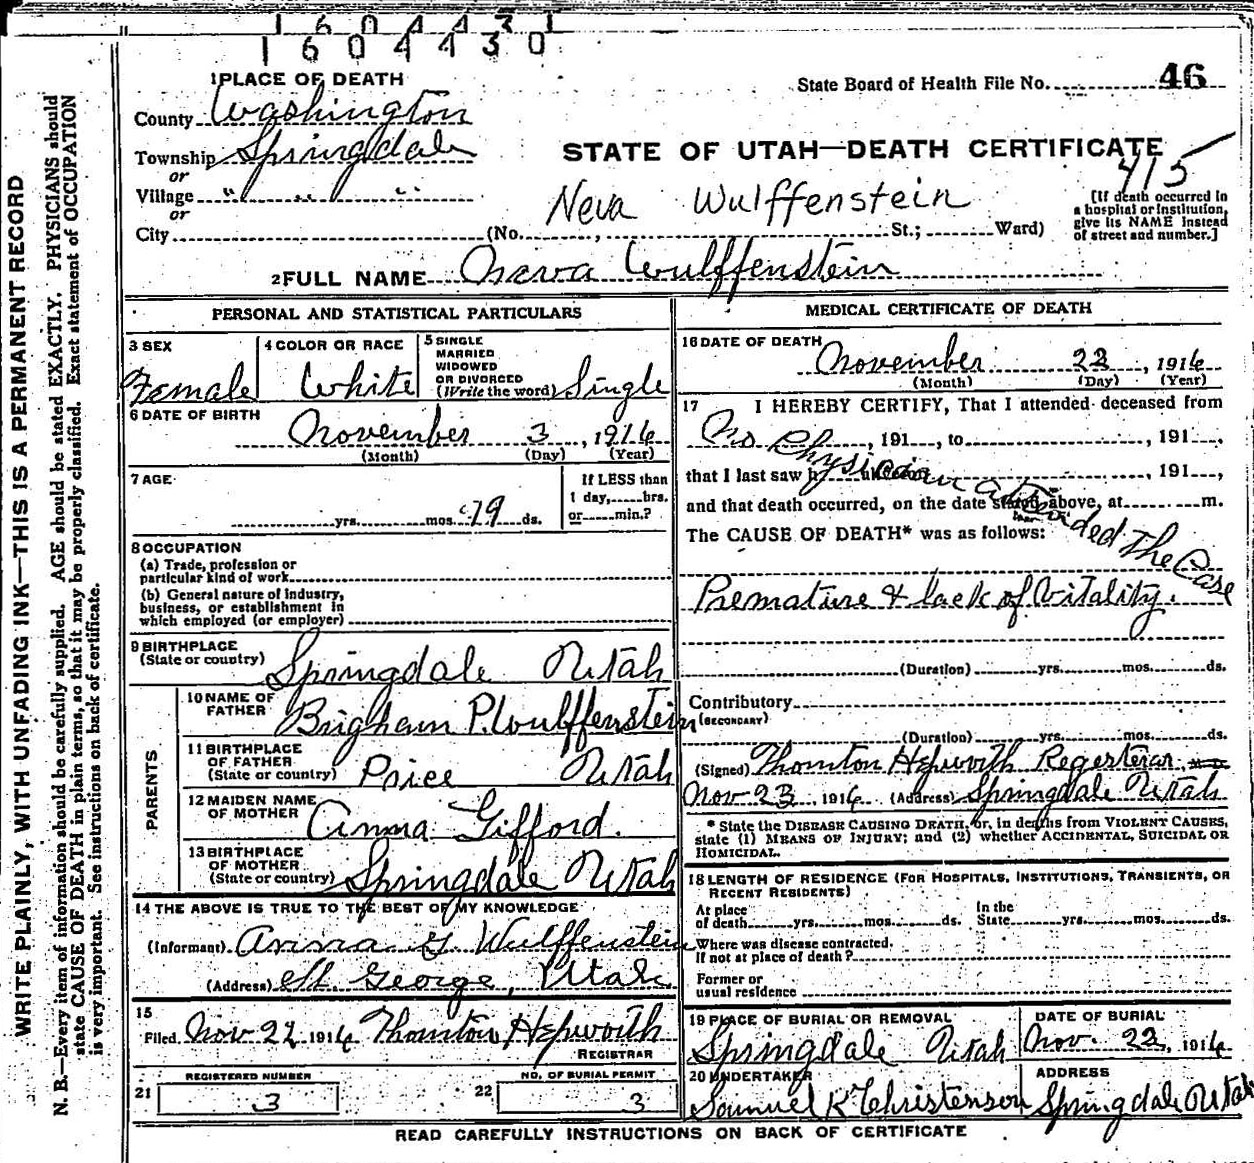 1604430
1604430
1 PLACE OF DEATH
State Board of Health File No. 46
County Washington
Township Springdale
STATE OF UTAH—DEATH CERTIFICATE
or
415
Village " " "
Neva Wulffenstein
[If death occurred in
a hospital or institution,
give its NAME instead
of street and number.]
or
City (No. , St.; Ward)
2 FULL NAME Neva Wulffenstein
PERSONAL AND STATISTICAL PARTICULARS
3 SEX
Female
4 COLOR OR RACE
White
5 SINGLE
MARRIED
WIDOWED
OR DIVORCED
(Write the word) Single
6 DATE OF BIRTH
November 3, 1916
(Month) (Day) (Year)
7 AGE
yrs. mos. 19 ds.
If LESS than
1 day, hrs.
or min.?
8 OCCUPATION
(a) Trade, profession or
particular kind of work
(b) General nature of industry,
business, or establishment in
which employed (or employer)
9 BIRTHPLACE
(State or country) Springdale Utah
PARENTS
10 NAME OF
FATHER Brigham P. Wulffenstein
11 BIRTHPLACE
OF FATHER
(State or country) Price Utah
12 MAIDEN NAME
OF MOTHER Anna Gifford.
13 BIRTHPLACE
OF MOTHER
(State or country) Springdale Utah
14 THE ABOVE IS TRUE TO THE BEST OF MY KNOWLEDGE
(Informant) Anna G. Wulffenstein
(Address) St George, Utah
15
Filed Nov 22 1916 Thornton Hepworth
REGISTRAR
21 REGISTERED NUMBER
3
22 NO. OF BURIAL PERMIT
3
MEDICAL CERTIFICATE OF DEATH
16 DATE OF DEATH
November 22, 1916
(Month) (Day) (Year)
17 I HEREBY CERTIFY, That I attended deceased from
, 191 , to , 191 ,
that I last saw h , 191 ,
and that death occurred, on the date stated above, at m.
No Physician attended the Case
The CAUSE OF DEATH* was as follows:
Premature & lack of Vitality.
(Duration) yrs. mos. ds.
Contributory
(SECONDARY)
(Duration) yrs. mos. ds.
(Signed) Thornton Hepworth Regesterar,
Nov 23, 1916 (Address) Springdale Utah
* State the DISEASE CAUSING DEATH, or, in deaths from VIOLENT CAUSES,
state (1) MEANS OF INJURY; and (2) whether ACCIDENTAL, SUICIDAL OR
HOMICIDAL.
18 LENGTH OF RESIDENCE (FOR HOSPITALS, INSTITUTIONS, TRANSIENTS, OR
RECENT RESIDENTS)
At place
of death yrs. mos. ds.
In the
State yrs. mos. ds.
Where was disease contracted,
if not at place of death?
Former or
usual residence
19 PLACE OF BURIAL OR REMOVAL
Springdale Utah
DATE OF BURIAL
Nov. 22, 1916
20 UNDERTAKER
Samuel K Christenson
ADDRESS
Springdale Utah
READ CAREFULLY INSTRUCTIONS ON BACK OF CERTIFICATE
WRITE PLAINLY, WITH UNFADING INK—THIS IS A PERMANENT RECORD
N. B.—Every item of information should be carefully supplied. AGE should be stated EXACTLY. PHYSICIANS should
state CAUSE OF DEATH in plain terms, so that it may be properly classified. Exact statement of OCCUPATION
is very important. See instructions on back of certificate.